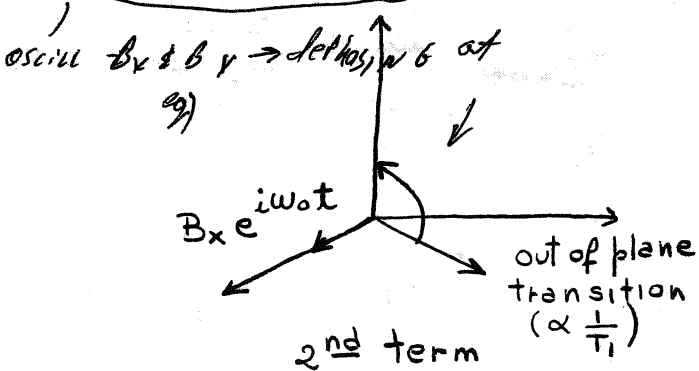 oscill Bx & By → dephasing at
eq)
Bx e^iω₀t
out of plane
transition
(∝ 1/T₁)
2nd term